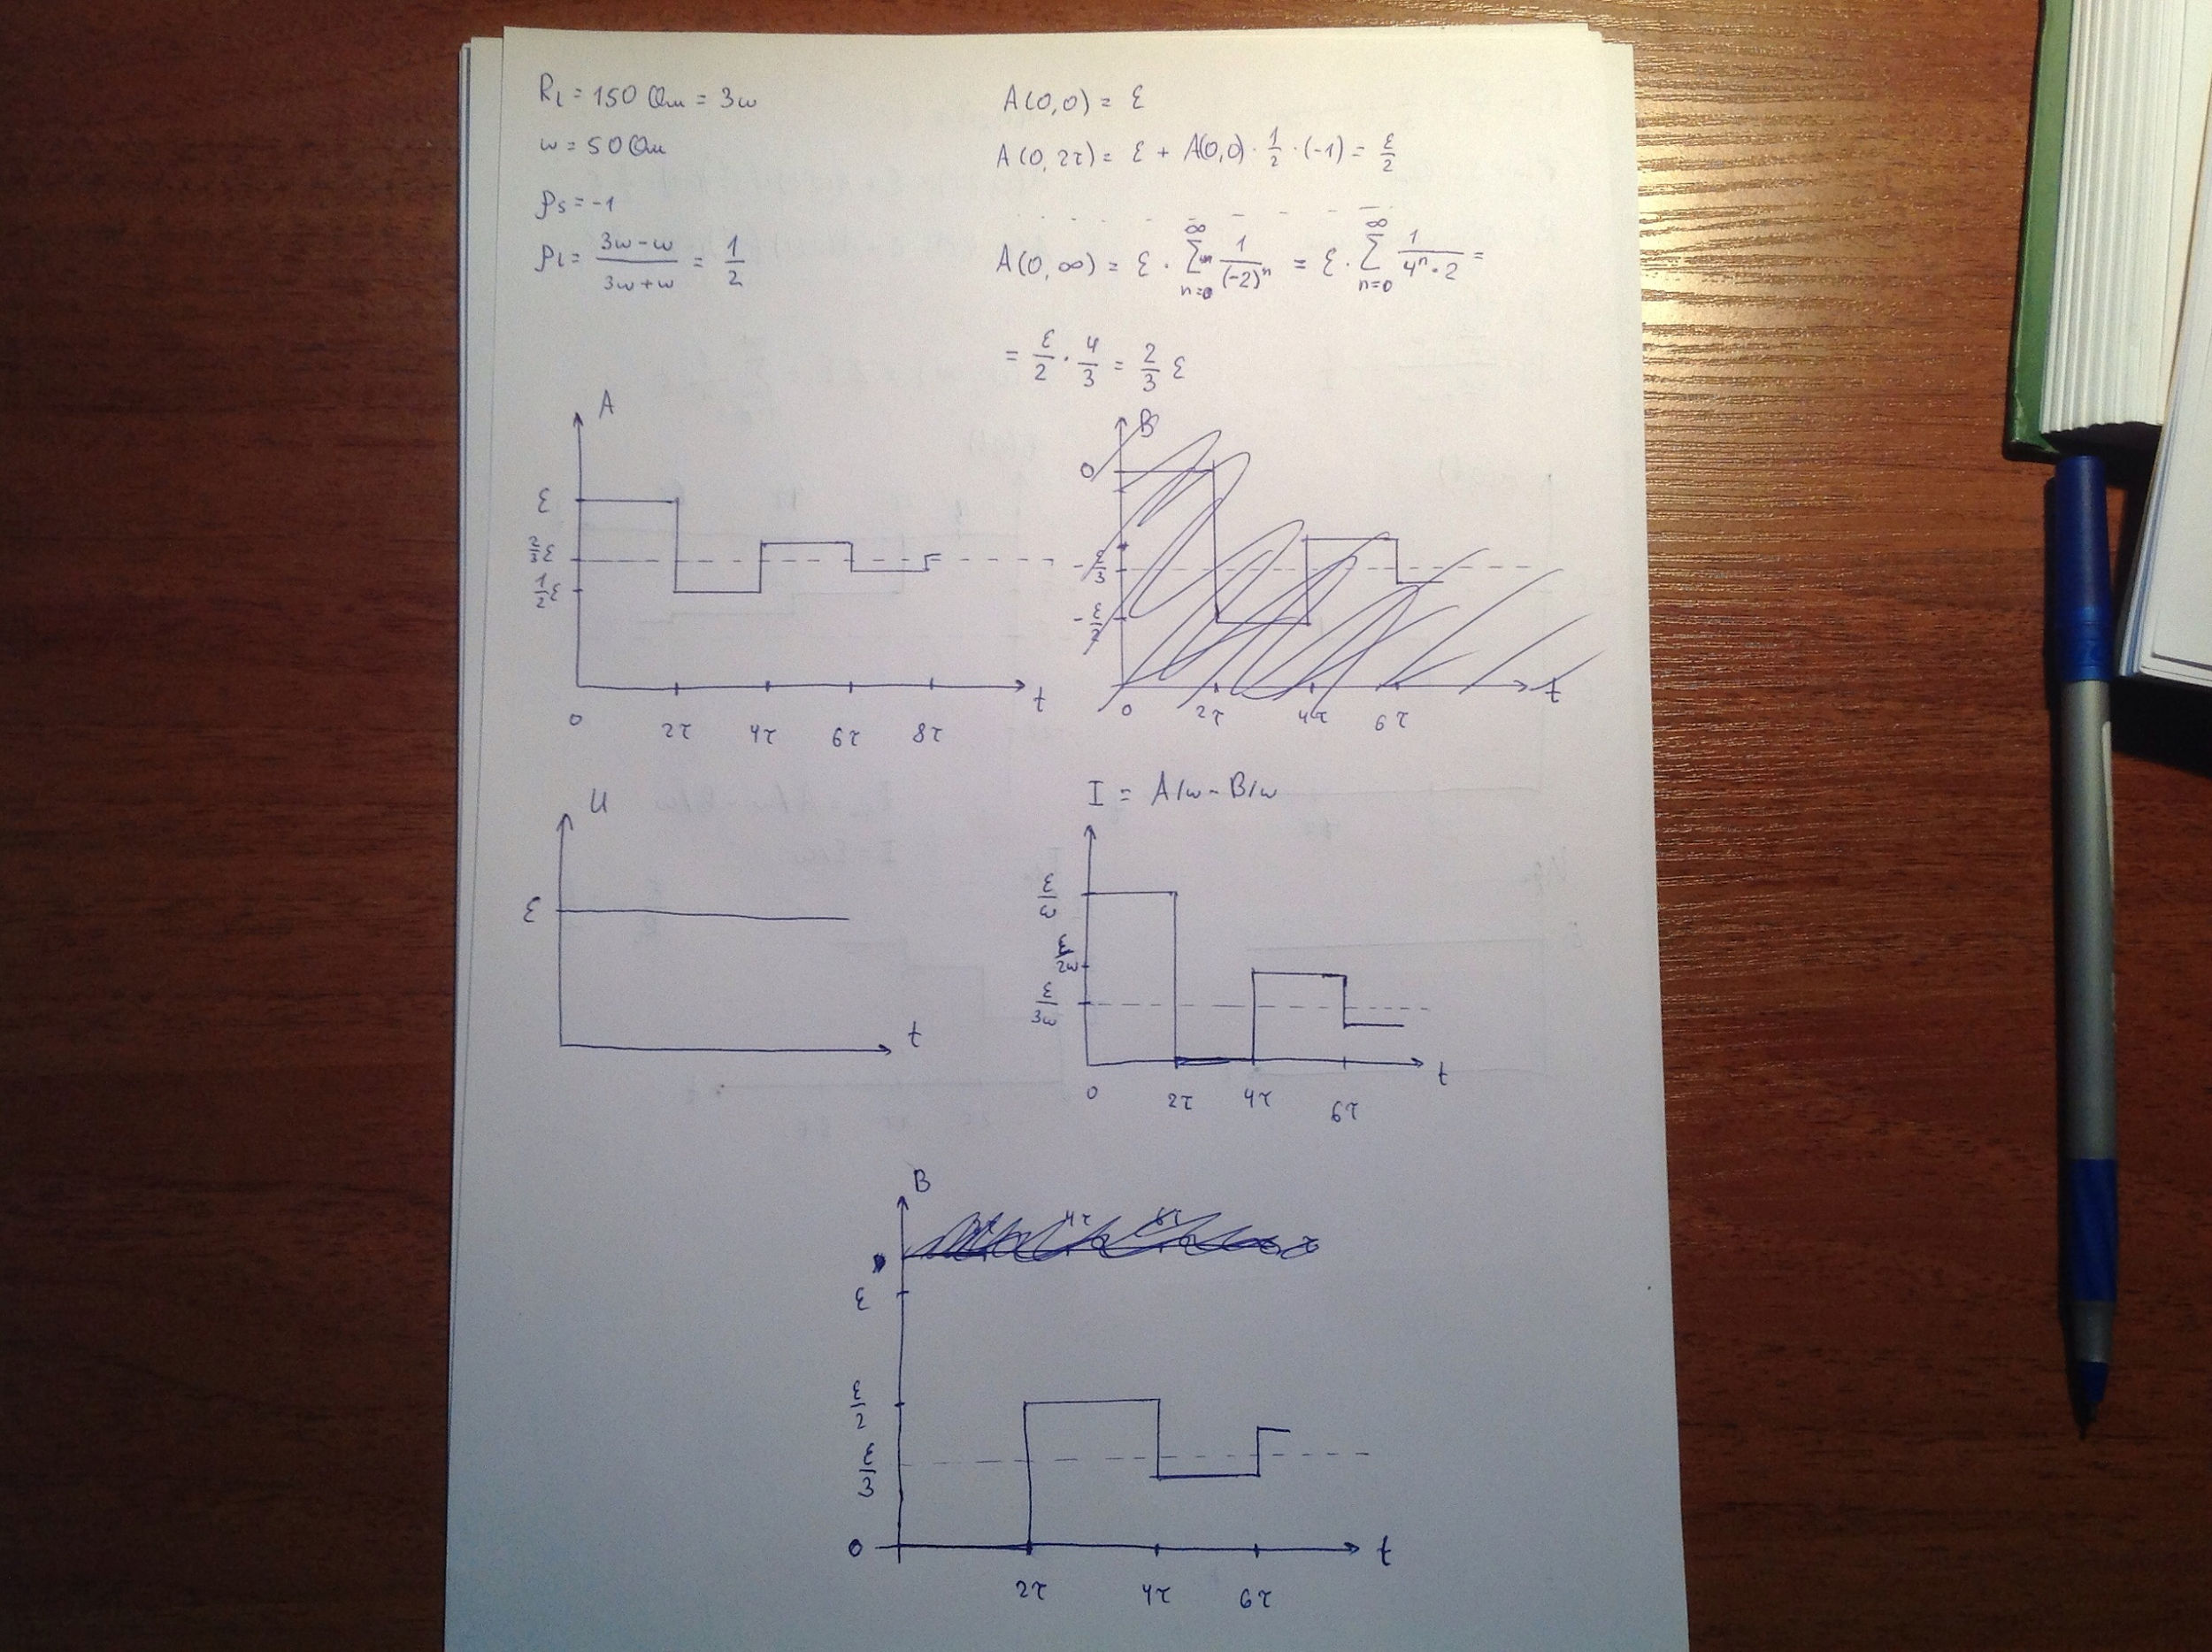 R_L = 150 Ом = 3w
w = 50 Ом
ρ_S = -1
ρ_L = (3w - w)/(3w + w) = 1/2
A(0,0) = ℰ
A(0,2τ) = ℰ + A(0,0) · 1/2 · (-1) = ℰ/2
A(0,∞) = ℰ · ∑_{n=0}^{∞} 1/(-2)^n = ℰ · ∑_{n=0}^{∞} 1/(4^n · 2) =
= ℰ/2 · 4/3 = 2/3 ℰ
A
ℰ
2/3 ℰ
1/2 ℰ
0 2τ 4τ 6τ 8τ
t
B
0
-ℰ/3
-ℰ/2
0 2τ 4τ 6τ
t
U
ℰ
t
I = A/w - B/w
ℰ/w
ℰ/2w
ℰ/3w
0 2τ 4τ 6τ
t
B
4τ 6τ
ℰ
ℰ/2
ℰ/3
0
t
2τ 4τ 6τ